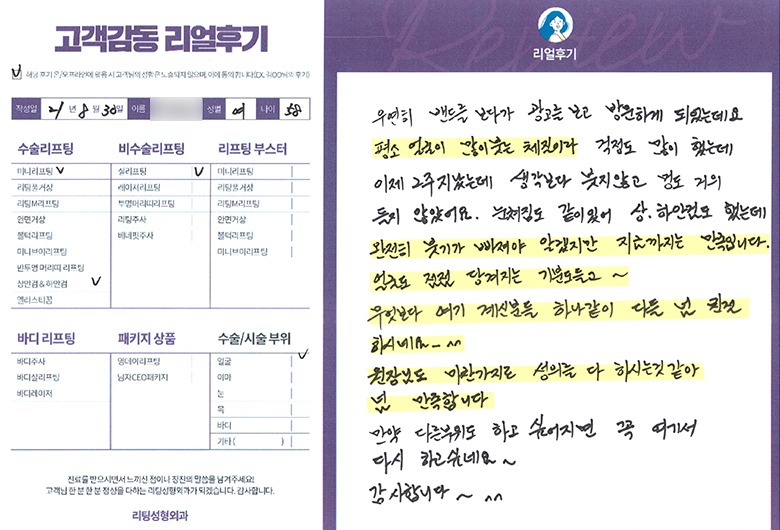 고객감동 리얼후기
해당 후기 온/오프라인에 활용 시 고객님의 성함은 노출되지 않으며, 이에 동의합니다(EX. 김OO님의 후기)
작성일 21년 8월 30일 이름 성별 여 나이 58
수술리프팅
미니리프팅
리팅풀거상
리팅M리프팅
안면거상
볼턱리프팅
미니브이리프팅
반투명 머리띠 리프팅
상안검&하안검
엘라스티꿈
비수술리프팅
실리프팅
레이저리프팅
투명머리띠리프팅
리팅주사
바네핏주사
리프팅 부스터
미니리프팅
리팅풀거상
리팅M리프팅
안면거상
볼턱리프팅
미니브이리프팅
바디 리프팅
바디주사
바디실리프팅
바디레이저
패키지 상품
영데이리프팅
남자CEO패키지
수술/시술 부위
얼굴
이마
눈
목
바디
기타 ( )
진료를 받으시면서 느끼신 점이나 칭찬의 말씀을 남겨주세요!
고객님 한 분 한 분 정성을 다하는 리팅성형외과가 되겠습니다. 감사합니다.
리팅성형외과
Review
리얼후기
우연히 밴드를 보다가 광고를 보고 방문하게 되었는데요
평소 얼굴이 많이붓는 체질이라 걱정도 많이 했는데
이제 2주지났는데 생각보다 붓지않고 멍도 거의
들지 않았어요. 눈쳐짐도 같이있어 상.하안검도 했는데
완전히 붓기가 빠져야 알겠지만 지금까지는 만족입니다.
얼굴도 점점 당겨지는 기분도들고~
무엇보다 여기 계신분들 하나같이 다들 넘 친절
하시네요~^^
원장님도 마찬가지로 성의를 다 하시는것같아
넘 만족합니다
만약 다른부위도 하고 싶어지면 꼭 여기서
다시 하고싶네요~
감사합니다~ ^^